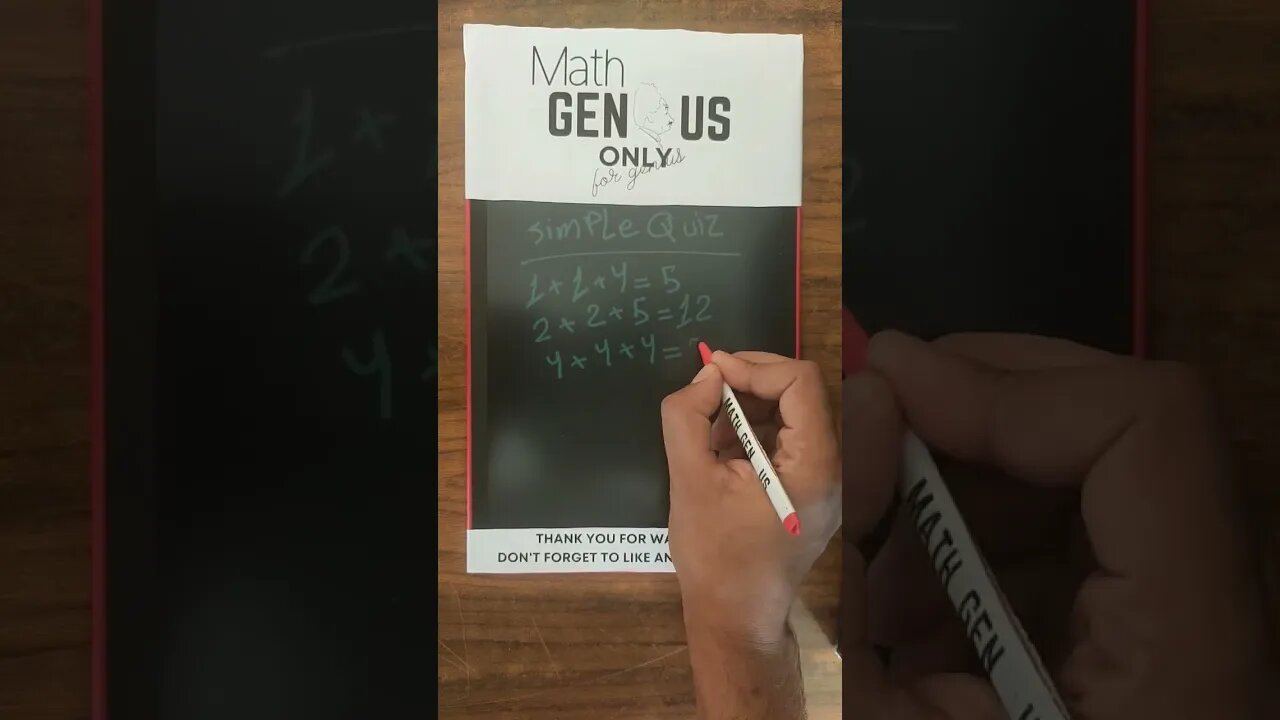 Math
GEN US
ONLY
for genius
simPLe Quiz
1 + 1 + 4 = 5
2 + 2 + 5 = 12
4 + 4 + 4 =
MATH GEN US
THANK YOU FOR WA
DON'T FORGET TO LIKE AN